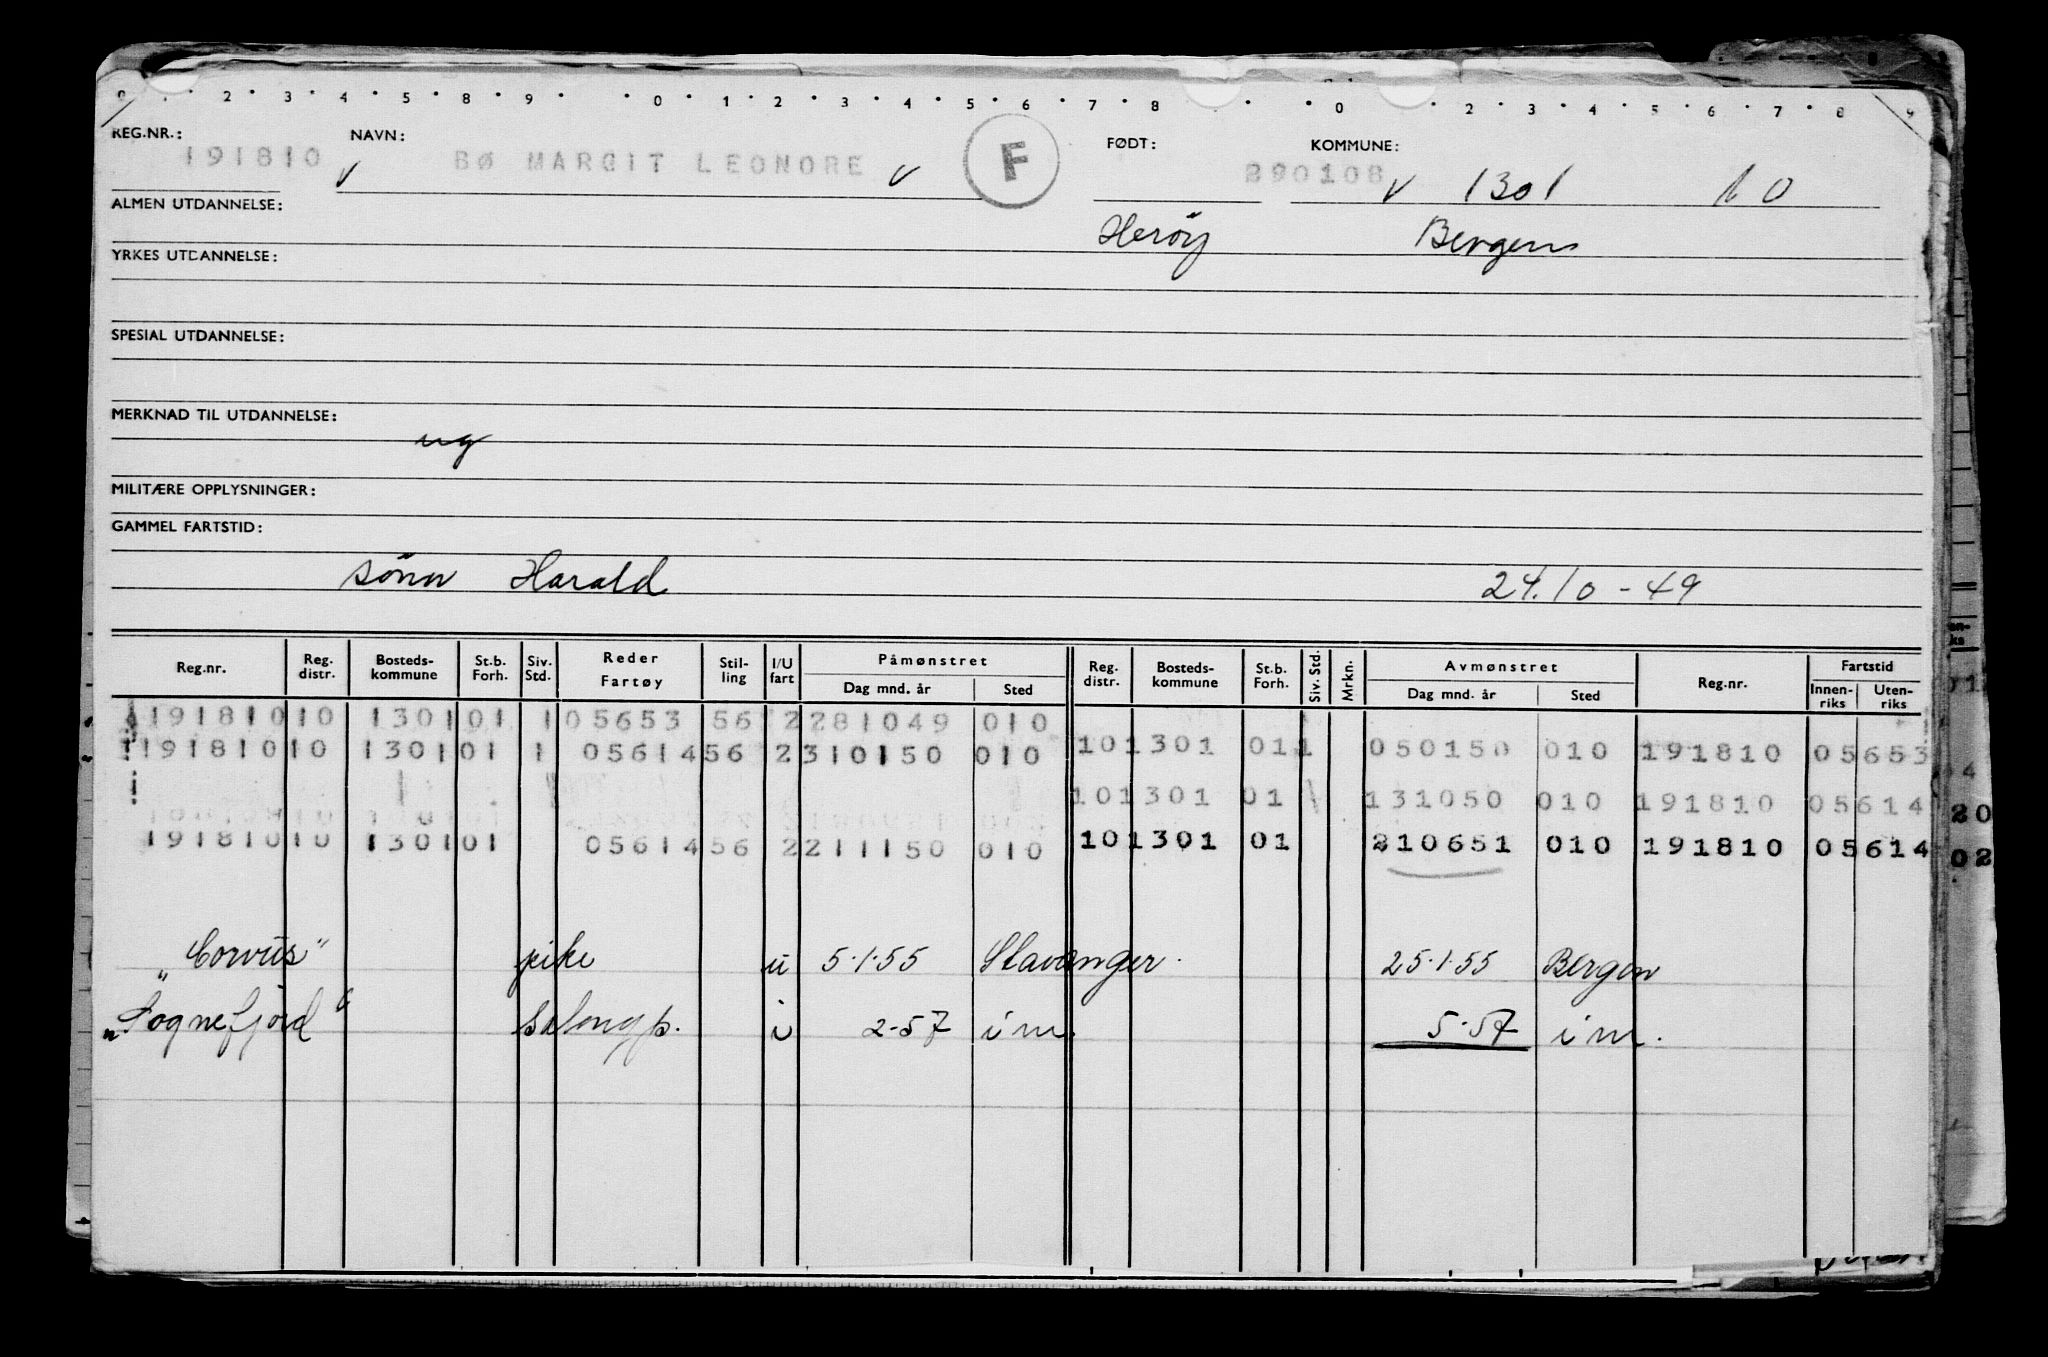 0 . . 2 . 3 . 4 . 5 . 8 . 9 . . 0 . 1 . 2 . 3 . 4 . 5 . 6 . 7 . 8 . . 0 . 2 . 3 . 4 . 5 . 6 . 7 . 8 . 9
REG.NR.: NAVN: FØDT: KOMMUNE:
191810 V BØ MARGIT LEONORE V F 290108 V 1301 10
ALMEN UTDANNELSE: Herøy Bergen
YRKES UTDANNELSE:
SPESIAL UTDANNELSE:
MERKNAD TIL UTDANNELSE:
ug
MILITÆRE OPPLYSNINGER:
GAMMEL FARTSTID:
sönn Harald 24.10-49
Reg.nr. Reg. distr. Bosteds- kommune St.b. Forh. Siv. Std. Reder Fartøy Stil- ling I/U fart Påmønstret Dag mnd. år Sted Reg. distr. Bosteds- kommune St.b. Forh. Siv. Std. Mrkn. Avmønstret Dag mnd. år Sted Reg.nr. Fartstid Innen- riks Uten- riks
191810 10 1301 01 1 05653 56 2 281049 010
191810 10 1301 01 1 05614 56 2 310150 010 10 1301 01 1 050150 010 191810 05653
10 1301 01 131050 010 191810 05614 20
191810 10 1301 01 05614 56 2 211150 010 10 1301 01 210651 010 191810 05614 02
"Corvus" pike u 5.1.55 Stavanger 25.1.55 Bergen
"Sognefjord" salongp. i 2-57 i m. 5.57 i m.